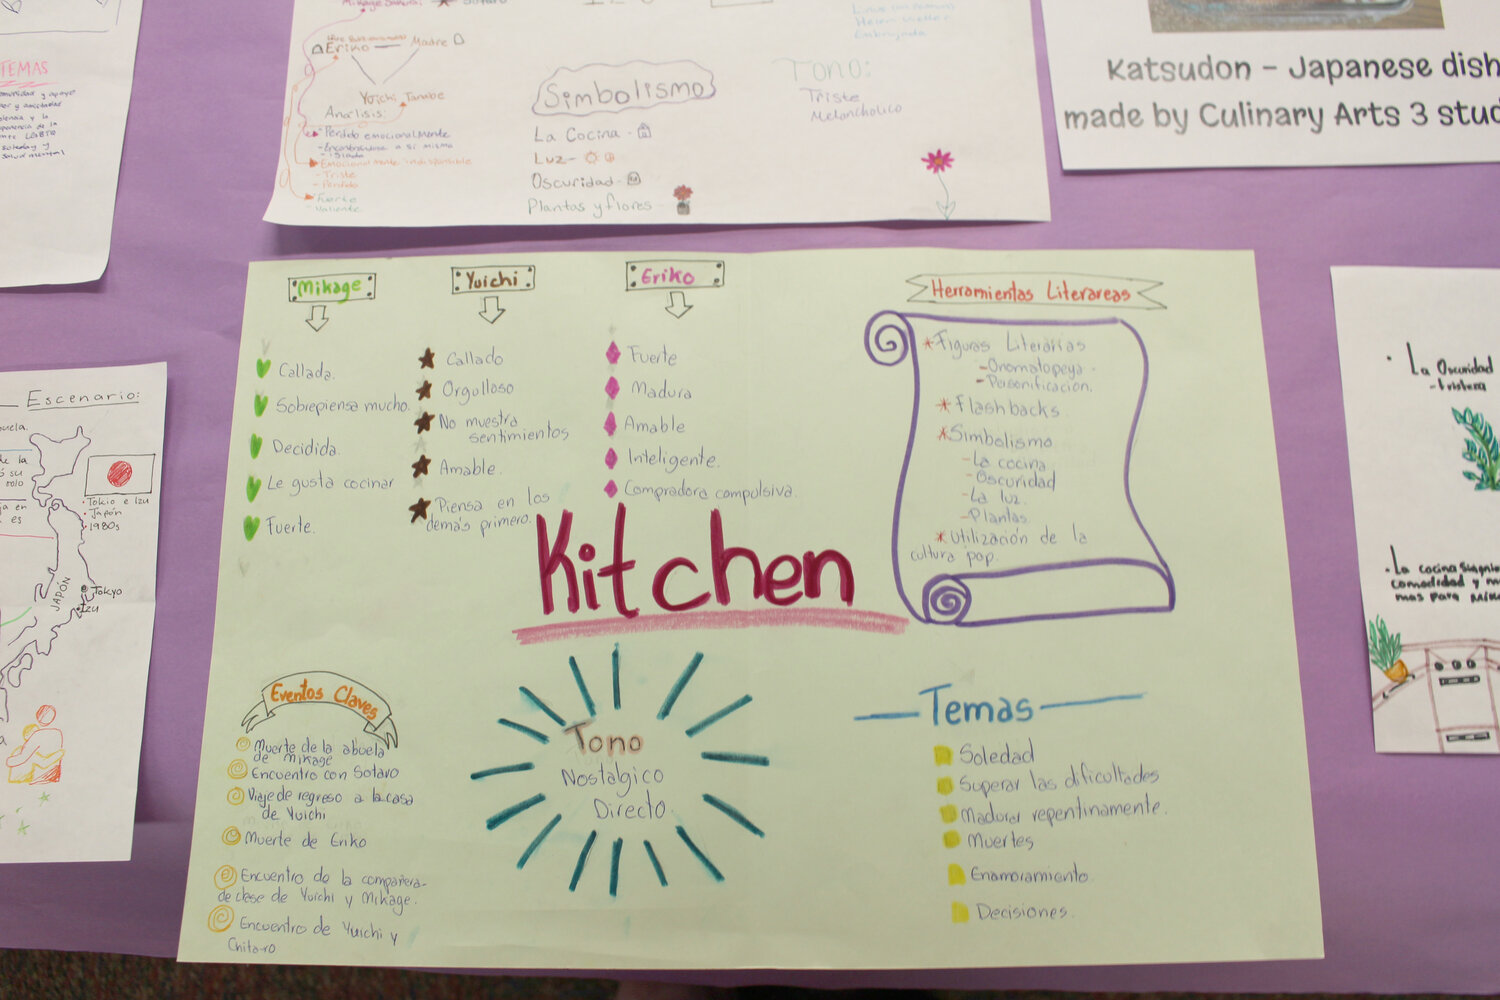 TEMAS
Mikage Sakurai
Sotaro
Eriko
Madre
Yuichi Tanabe
Analisis:
- Perdido emocionalmente
- Encontrandose a si misma
- Islada
Emocionalmente indisponible
- Triste
- Perdido
- Fuerte
- Valiente
Simbolismo
La Cocina -
Luz -
Oscuridad -
Plantas y flores -
Tono:
Triste
Melancholico
Katsudon - Japanese dish
made by Culinary Arts 3
Escenario:
Tokio e Izu
Japón
1980s
JAPÓN
Tokyo
Izu
Mikage
Callada.
Sobrepiensa mucho.
Decidida.
Le gusta cocinar
Fuerte.
Yuichi
Callado
Orgulloso
No muestra
sentimientos
Amable.
Piensa en los
demás primero.
Eriko
Fuerte
Madura
Amable
Inteligente.
Compradora compulsiva.
Herramientas Literareas
*Figuras Literarias
-Onomatopeya.
-Personificación.
*Flashbacks.
*Simbolismo
-La cocina
-Oscuridad
-La luz.
-Plantas.
*Utilización de la
cultura pop.
Kitchen
Eventos Claves
Muerte de la abuela
de Mikage
Encuentro con Sotaro
Viaje de regreso a la casa
de Yuichi
Muerte de Eriko
Encuentro de la compañera
de clase de Yuichi y Mikage.
Encuentro de Yuichi y
Chitaro
Tono
Nostálgico
Directo.
Temas
Soledad
Superar las dificultades
Madurar repentinamente.
Muertes
Enamoramiento.
Decisiones.
La Oscuridad
- Tristeza
La cocina
comodidad y
mas para